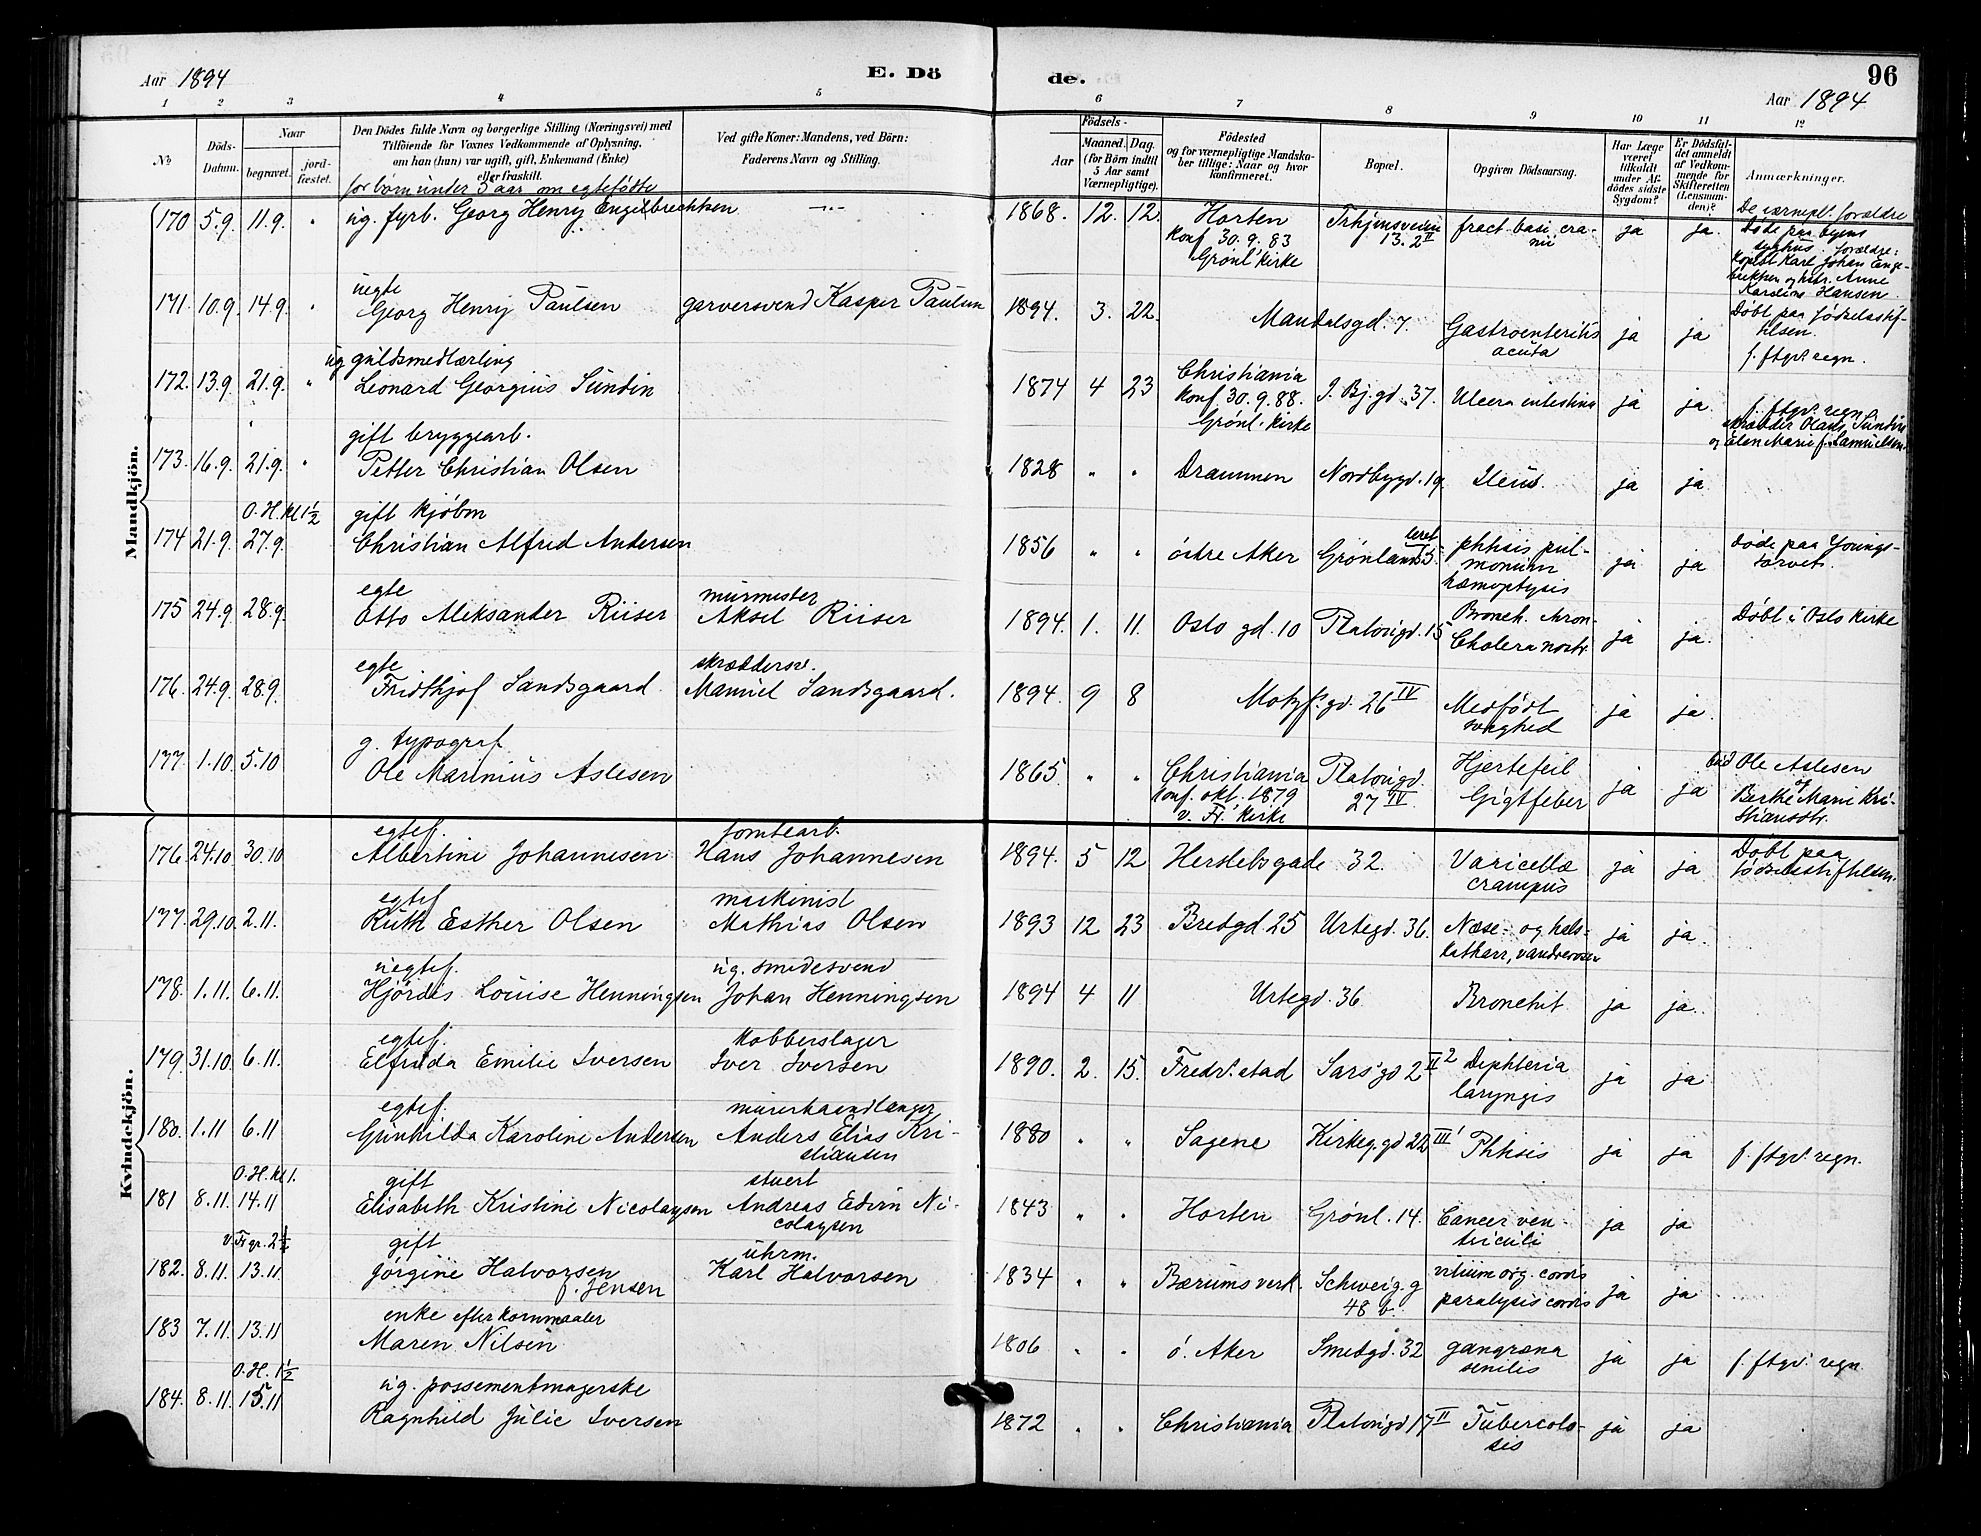 Aar 1894
E. Dö
de.
96
Aar 1894
1 2 3 4 5 6 7 8 9 10 11 12
№
Döds-
Datum.
Naar
begravet.
jord-
fæstet.
Den Dödes fulde Navn og borgerlige Stilling (Næringsvei) med
Tilföiende for Voxnes Vedkommende af Oplysning,
om han (hun) var ugift, gift, Enkemand (Enke)
eller fraskilt.
for børn under 5 aar om egtefødte
Ved gifte Koner: Mandens, ved Börn:
Faderens Navn og Stilling.
Födsels-
Aar
Maaned.
Dag.
(for Börn indtil
5 Aar samt
Værnepligtige).
Födested
og for værnepligtige Mandska-
ber tillige: Naar og hvor
konfirmeret.
Bopæl.
Opgiven Dödsaarsag.
Har Læge
været
tilkaldt
under Af-
dödes sidste
Sygdom?
Er Dödsfal-
det anmeldt
af Vedkom-
mende for
Skifteretten
(Lensman-
den)?
Anmærkninger.
De værnepl. forældre
Mandkjön.
170 5.9. 11.9. " ug. fyrb. Georg Henry Engelbrechtsen —"— 1868. 12. 12. Horten
Konf. 30.9.83
Grønl. Kirke
Trhjemsveien
13. 2 II
fract. basi cra-
nii
ja ja.
Døde paa byens
syghus. forældre:
Karl Johan Enge-
Anne
Karoline Hansen.
171. 10.9. 14.9. " uegte
Georg Henry Paulsen garversvend Kasper Paulsen 1894. 3. 22. Mandalsgd. 7. Gastroenteritis
acuta
ja ja
Døbt paa Fødselsstif-
telsen.
f. ftgv. regn.
172. 13.9. 21.9. " ug guldsmedlærling
Leonard Georgius Sundin 1874 4 23 Christiania
Konf. 30.9.88.
Grønl. Kirke
J. Bj. gd. 37. Ulcera intestina ja ja.
f. ftgv. regn.
skrædder Olaus Sundin
og Elen Marie f. Samuelsen
173. 16.9. 21.9. " gift bryggearb.
Petter Christian Olsen 1828 " " Drammen Nordbygd. 19 Ileus. ja ja
174 21.9. O.H. kl 1½
27.9. gift kjøbm
Christian Alfred Andersen 1856 " " östre Aker Grønlandsleret 5 phhisis pul-
monum
hæmoptysis
ja ja
døde paa Youngs-
torvet.
175 24.9. 28.9. egte
Otto Aleksander Riiser murmester
Aksel Riiser 1894. 1. 11. Oslo gd. 10 Platousgd. 15 Bronch. kron-
Cholera nostr.
ja ja.
Döbt i Oslo Kirke
176. 24.9. 28.9. egte
Fridthjof Sandsgaard. skræddersv.
Manuel Sandsgaard. 1894. 9 8 Motzf. gd. 26 IV Medfødt
svaghed
ja ja.
177. 1.10. 5.10 g. typograf
Ole Marinius Aslesen 1865. " " Christiania
Konf. okt. 1879
v. Fr. Kirke
Platousgd.
27 IV.
Hjertefeil
Gigtfeber
ja ja
Ole Aslesen
og
Berthe Marie Kri-
stiansdtr.
Kvindekjön.
176. 24.10 30.10 egtef.
Albertine Johannesen tomtearb.
Hans Johannesen 1894. 5 12 Herslebsgade 32. Varicellæ
crampus
ja ja
Døbt paa
Fødselsstiftelsen.
177. 29.10. 2.11. egtef
Ruth Esther Olsen maskinist
Mathias Olsen 1893 12 23 Bredgd. 25 Urtegd. 36. Næse- og hals-
katharr, vandrerosen
ja ja.
178. 1.11. 6.11. uegtef.
Hjördis Louise Henningsen ug. smedesvend
Johan Henningsen 1894 4 11 Urtegd. 36 Bronchit ja ja.
179. 31.10. 6.11. egtef.
Elfrida Emilie Iversen kobberslager
Iver Iversen 1890. 2. 15. Fredr.stad Sars'gd 2 II 2 Diphteria
laryngis
ja ja
180. 1.11 6.11 egtef.
Gunhilda Karoline Andersen murerhaandlanger
Anders Elias Kri-
stiansen
1880 " " Sagene Kirkeg. gd 22 III' Phhisis ja ja f. ftgv. regn.
181 8.11. O.H. kl 1.
14.11 gift
Elisabeth Kristine Nicolaysen stuert
Andreas Edvin Ni-
colaysen
1843 " " Horten Grønl. 14. Cancer ven-
triculi
ja ja
182. 8.11. V. Fr gr. 2½
13.11. gift
Jörgine Halvorsen
f. Jensen
uhrm.
Karl Halvorsen 1834 " " Bærums verk. Schweig. g
48 b.
vitium org. cordis
paralysis cordis
ja ja
183 7.11. 13.11 enke efter kornmaaler
Maren Nilsen 1806 " " ö. Aker Smedgd. 32 gangræna
senilis
ja ja f. ftgv. regn
184. 8.11. O.H. 1½
15.11 ug. possementmagerske
Ragnhild Julie Iversen 1872 " " Christiania Platousgd 17 II Tubercolo-
sis
ja ja